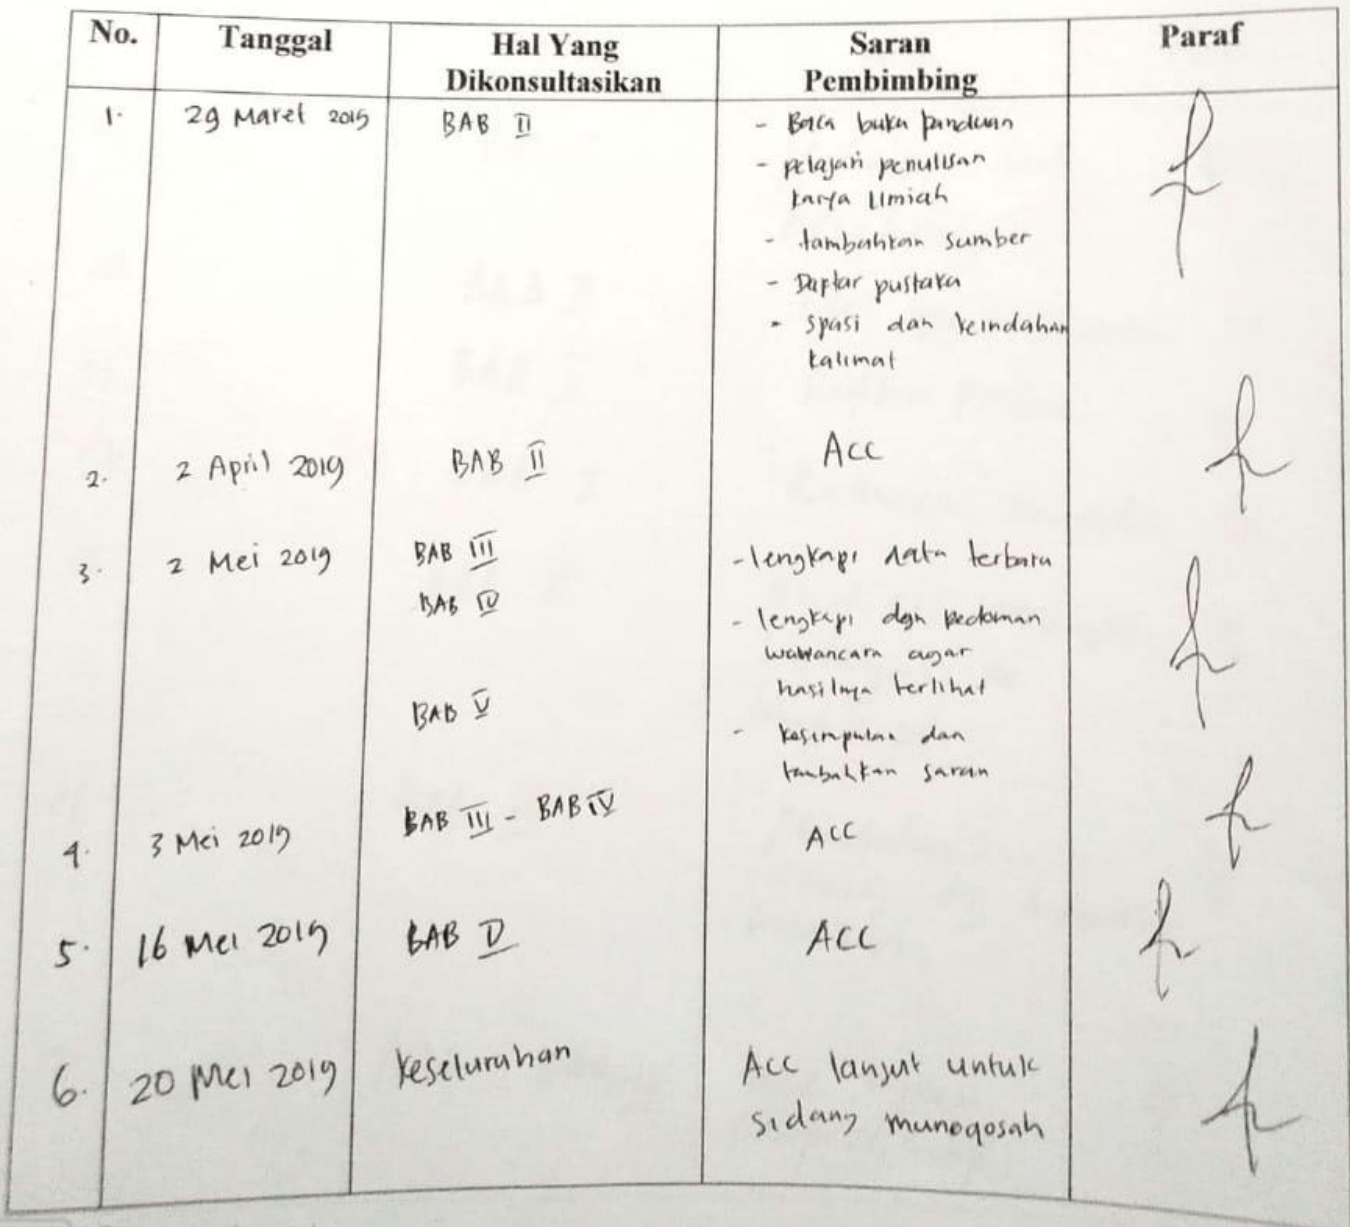 No. Tanggal Hal Yang Dikonsultasikan Saran Pembimbing Paraf
1. 29 Maret 2019 BAB II - Baca buku panduan
- pelajari penulisan
karya Ilmiah
- tambahkan sumber
- Daptar pustaka
- spasi dan keindahan
kalimat
2. 2 April 2019 BAB II ACC
3. 2 Mei 2019 BAB III - lengkapi data terbaru
BAB IV - lengkapi dgn pedoman
wawancara agar
hasilnya terlihat
BAB V - kesimpulan dan
tambahkan saran
4. 3 Mei 2019 BAB III - BAB IV ACC
5. 16 Mei 2019 BAB V ACC
6. 20 Mei 2019 keseluruhan ACC lanjut untuk
sidang munoqosah